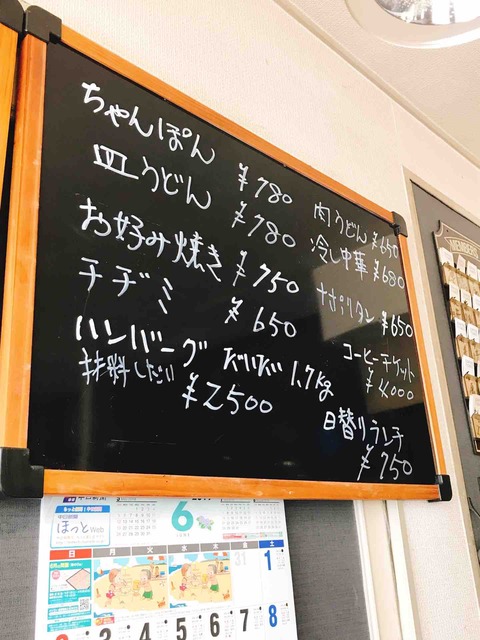 ちゃんぽん ¥780
皿うどん ¥780
お好み焼き ¥750
チヂミ ¥650
ハンバーグ だいたい 1.7kg
材料しだい ¥2500
肉うどん ¥650
冷し中華 ¥680
ナポリタン ¥650
コーヒーチケット
¥4,000
日替りランチ
¥750
MEMBERS
中日新聞
ほっとWeb
6
日 月 火 水 土
31 1
2 3 4 5 6 7 8